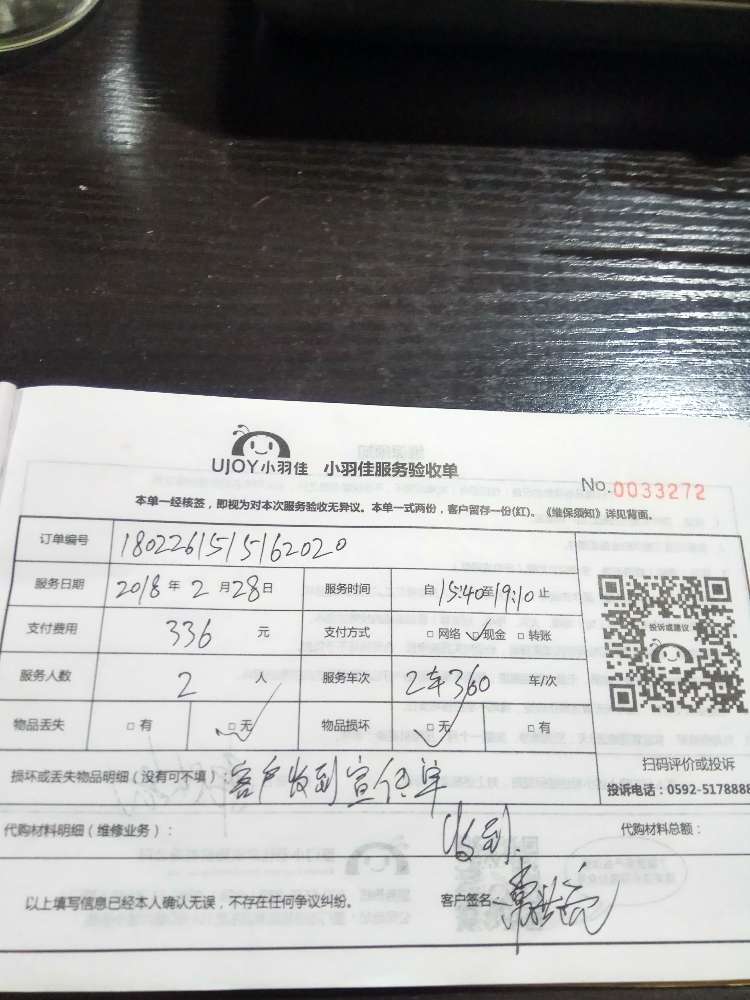 UJOY小羽佳 小羽佳服务验收单
No.0033272
本单一经核签，即视为对本次服务验收无异议。本单一式两份，客户留存一份(红)。《维保须知》详见背面。
订单编号 1802261515162020
服务日期 2018年2月28日 服务时间 自15:40至19:10止
支付费用 336 元 支付方式 □网络 ☑现金 □转账
投诉或建议
服务人数 2 人 服务车次 2车360 车/次
物品丢失 □有 ☑无 物品损坏 ☑无 □有
扫码评价或投诉
损坏或丢失物品明细（没有可不填）：客户收到宣传单
投诉电话：0592-5178888
代购材料明细（维修业务）： 代购材料总额：
收到.
以上填写信息已经本人确认无误，不存在任何争议纠纷。 客户签名：